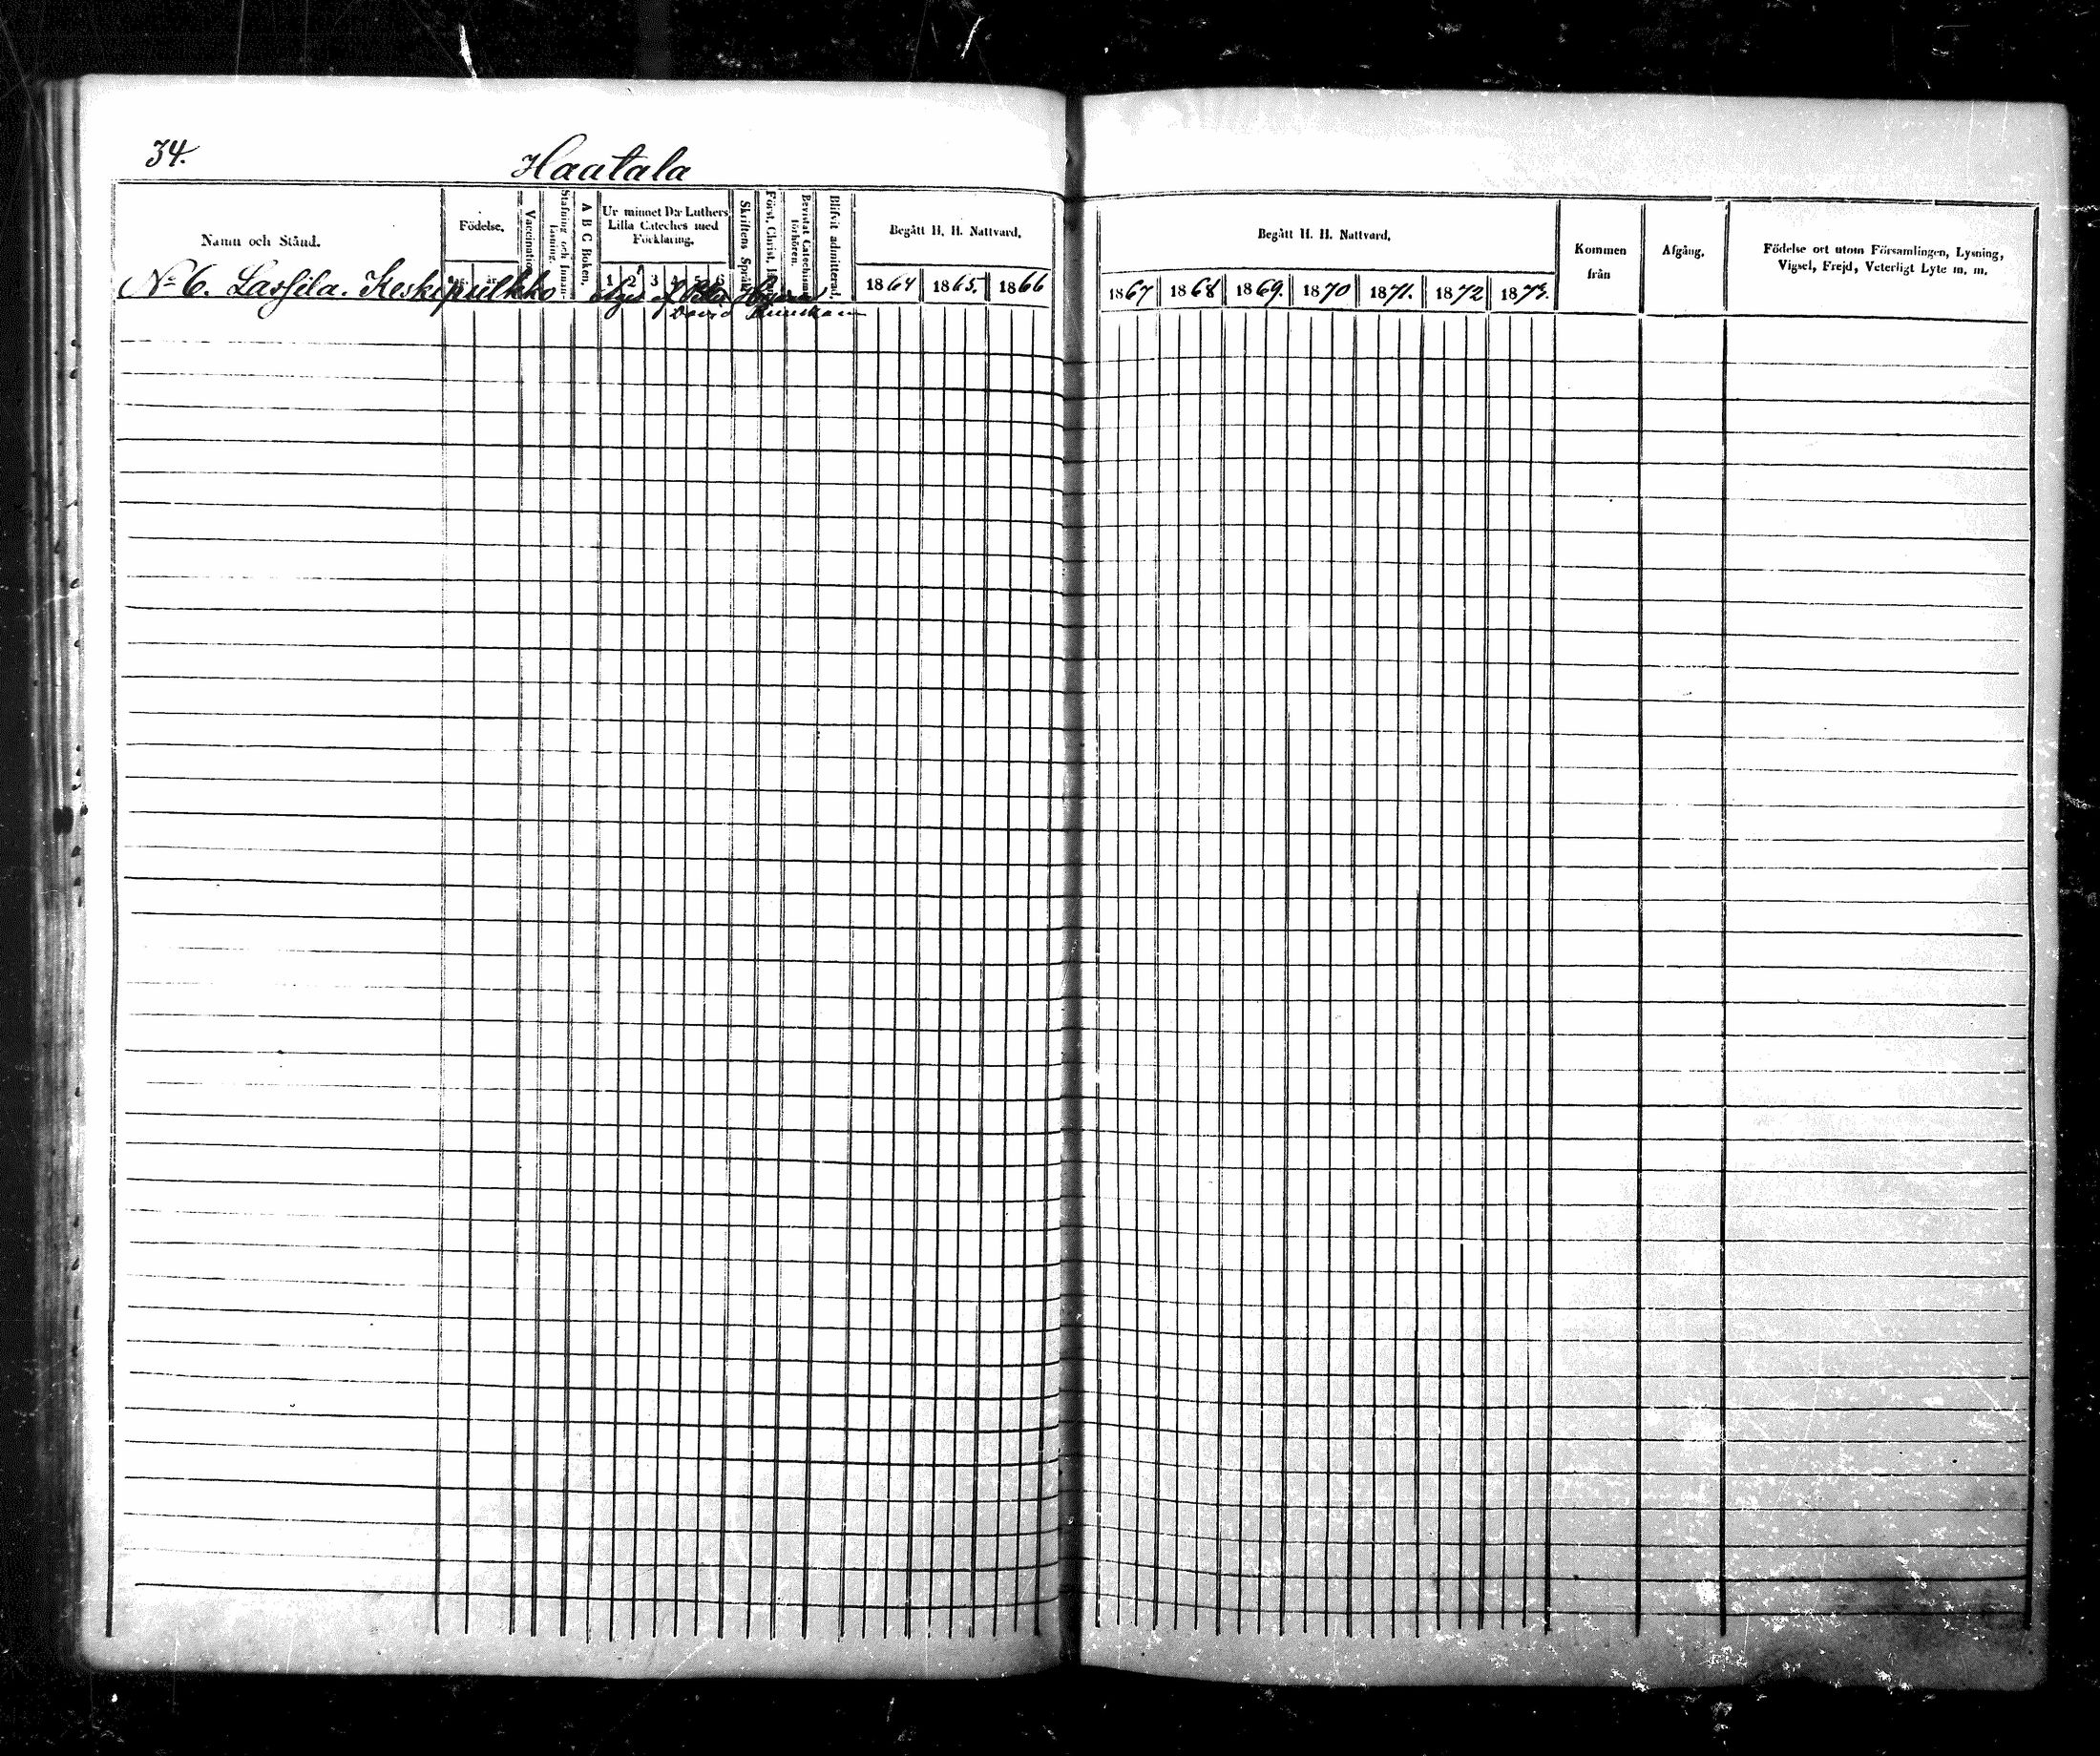 34.
Haatala
Namn och Stånd.
Födelse.
Vaccination
Stafning och Innanläsning.
A B C Boken.
Ur minnet D:r Luthers Lilla Cateches med Förklaring.
1 2 3 4 5 6
Skriftens Språk
Först. Christ.
Bevistat Catechismi förhören.
Blifvit admitterad.
Begått H. H. Nattvard.
1864 1865. 1866
Begått H. H. Nattvard.
1867 1868 1869. 1870 1871. 1872 1873.
Kommen från
Afgång.
Födelse ort utom Församlingen, Lysning, Vigsel, Frejd, Veterligt Lyte m. m.
No 6. Lassila. Keskipulkko
David